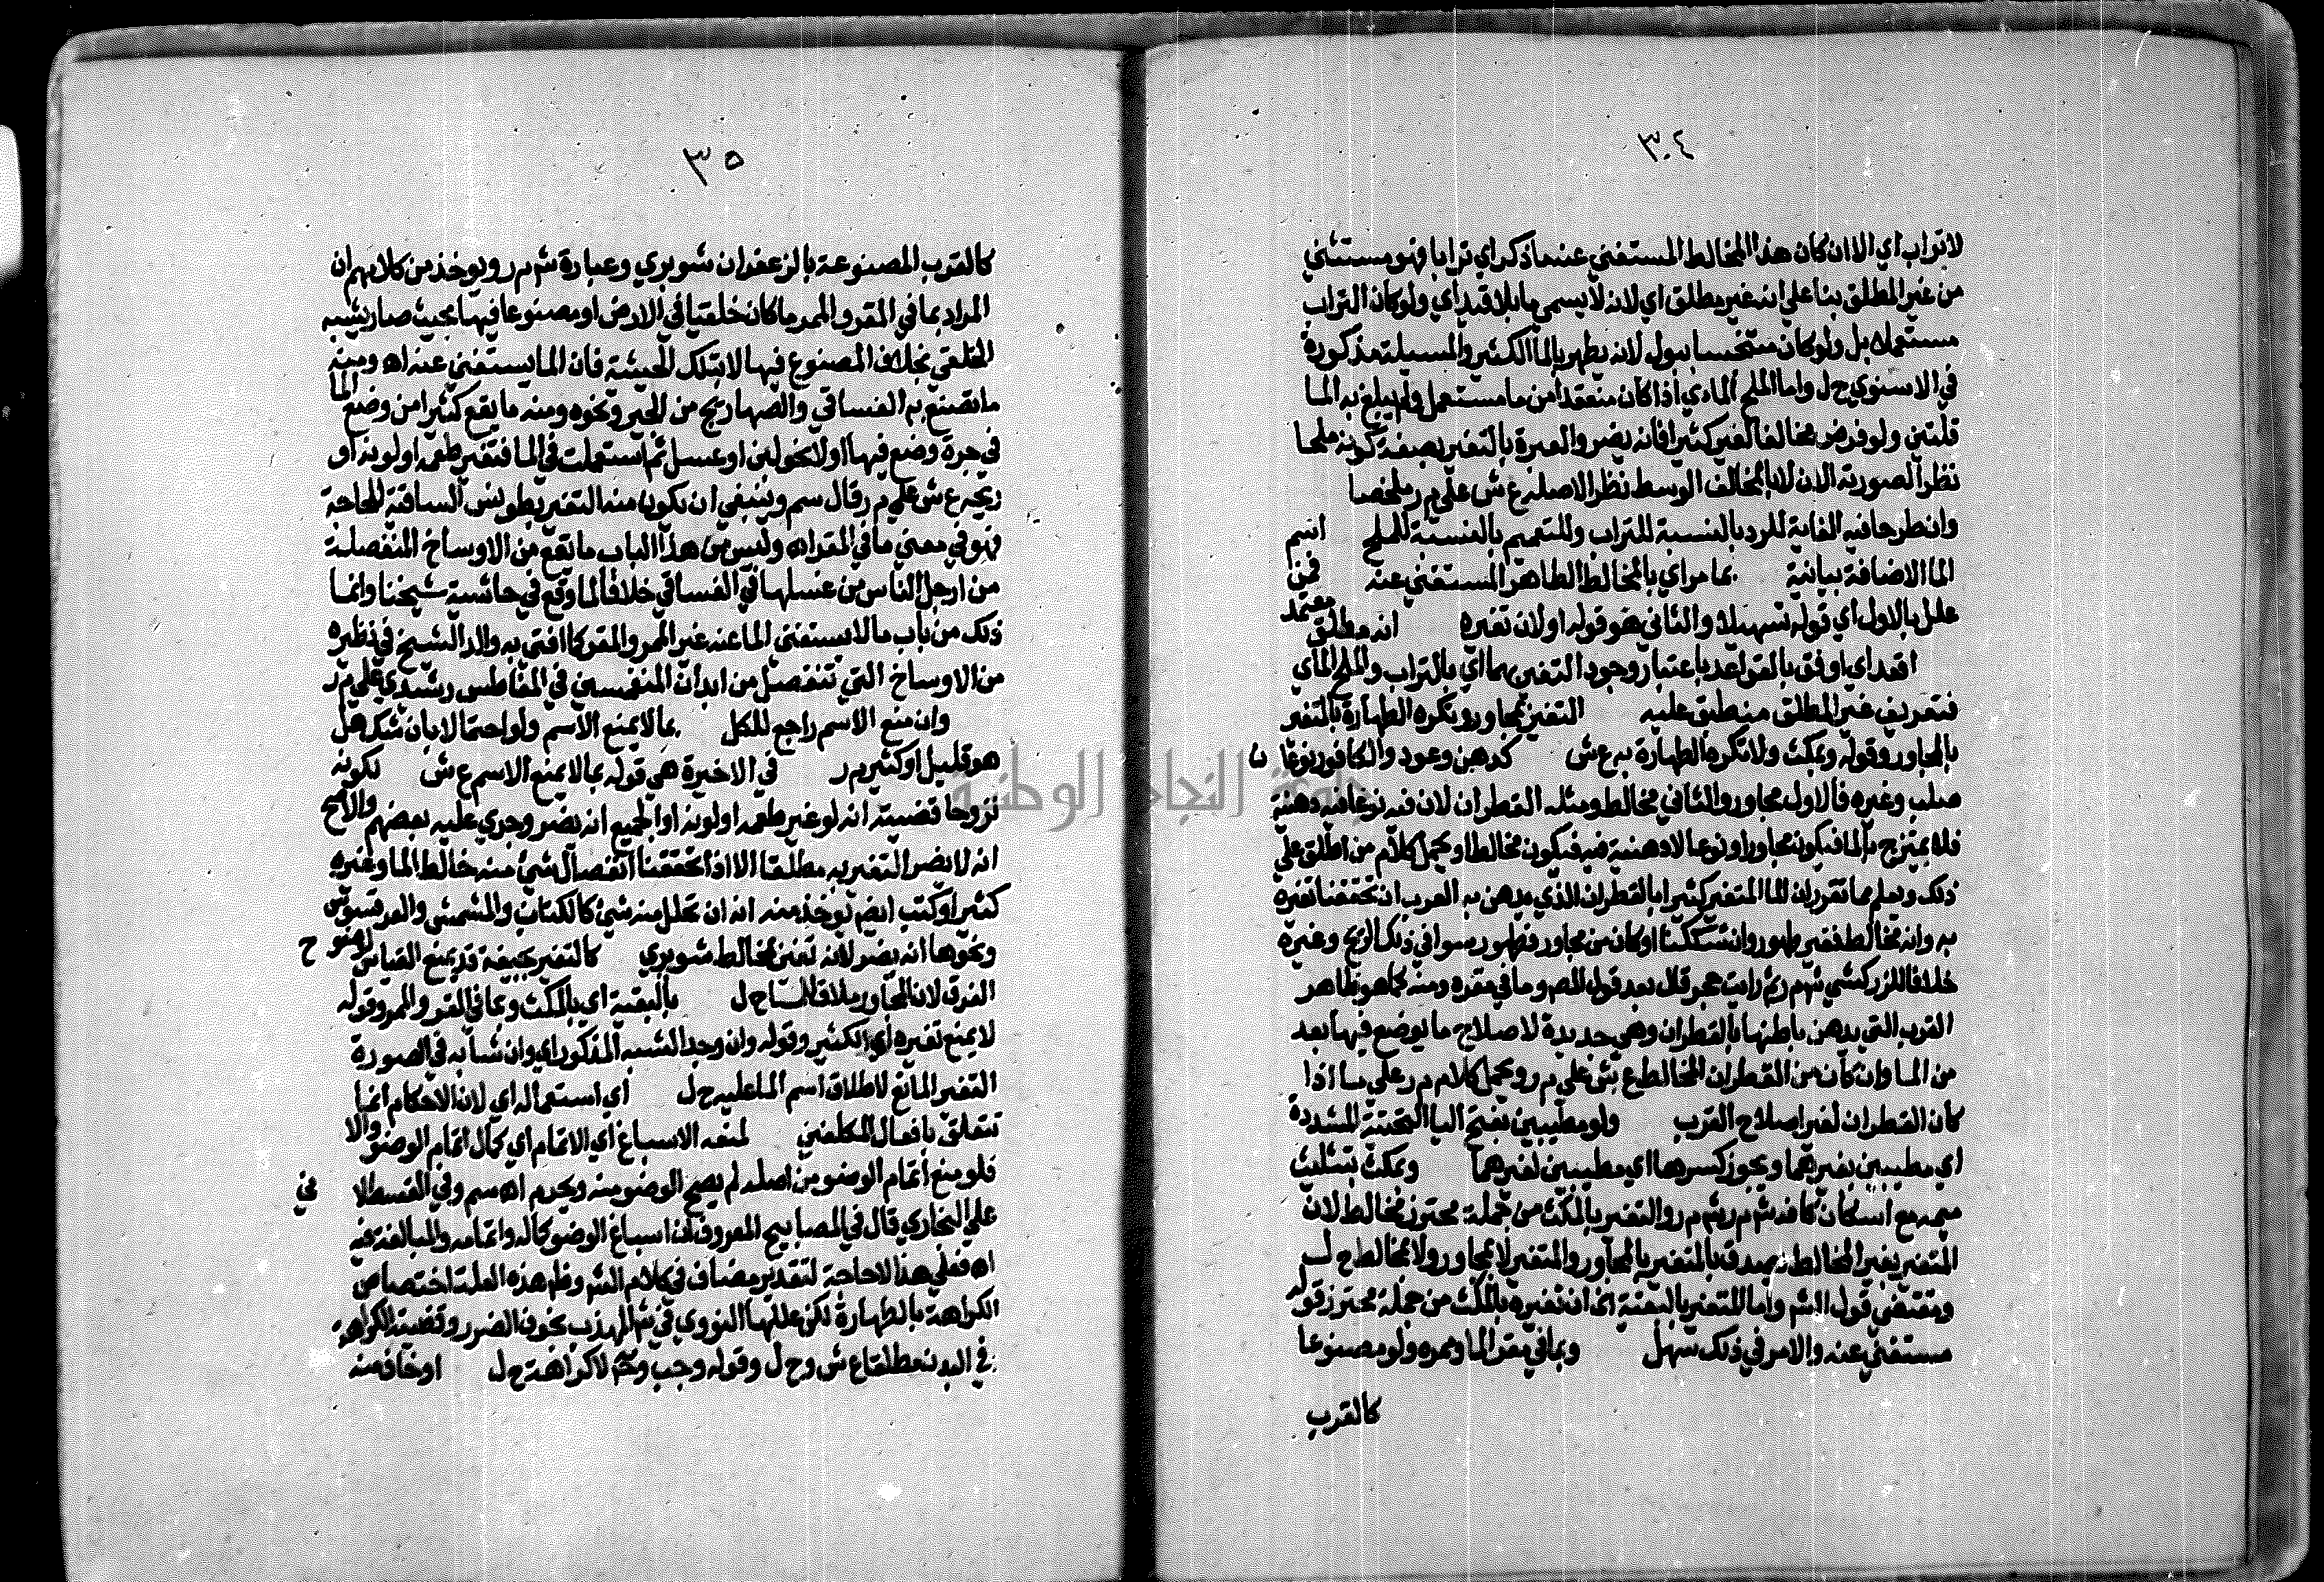 ٣٠٤
لا تراب اي الا ان كان هذا المخالط المستغني عنه ما ذكر اي ترابا فهو مستثني
من غير المطلق بنا علي انه غير مطلق اي لانه لا يسمي ما بلا قيد اي ولو كان التراب
مستعملا بل ولو كان متنجسا ببول لانه يطهر بالما الكثير والمسيلة مذكورة
في الاسنوي ح ل واما الملح المادي اذا كان منعقدا من ما مستعمل ولم يبلغ به الما
قلتين ولو فرض مخالفا لغير كثيرا فانه يضر والعبرة بالتغير بصفة كونه ملحا
نظرا لصورته الان لا بالمخالف الوسط نظرا لاصله ع ش علي م ر ملخصا
وانظر حافيه الغاية للرد بالنسبة للتراب وللتعميم بالنسبة للملح اسم
الما الاضافة بيانية بما مر اي بالمخالط الطاهر المستغني عنه فمن
علل بالاول اي قوله تسهيلا والثاني هو قوله او لان تغيره انه مطلق معتمد
اقعد اي اوفق بالقواعد باعتبار وجود التغير بهما اي بالتراب والملح المائي
فتعريف غير المطلق منطبق عليه التغير بمجاور وتكره الطهارة بالتغير
بالمجاور وقوله وبمكث ولا تكره الطهارة به ع ش كدهن وعود والكافور نوعان
صلب وغيره فالاول مجاور والثاني مخالط ومثله القطران لان فيه نوعا فيه دهنية
فلا يمتزج بالما فيكون مجاورا ونوعا لا دهنية فيه فيكون مخالطا ويحمل كلام من اطلق علي
ذلك ويعلم مما تقرر ان الما المتغير كثيرا بالقطران الذي يدهن به القرب ان تحققنا تغيره
به وانه مخالط فغير طهور وان شككنا او كان من مجاور فطهور سوا في ذلك الريح وغيره
خلافا للزركشي ش م ر ثم رايت حجر قال بعد قول المص وما في مقره ومنه كما هو ظاهر
القرب التي يدهن باطنها بالقطران وهي جديدة لاصلاح ما يوضع فيها بعد
من الما وان كان من القطران المخالط ع ش علي م ر ويحمل كلام م ر علي ما اذا
كان القطران لغير اصلاح القرب ولو مطيبين بفتح اليا التحتية المشددة
اي مطيبين بغيرهما ويجوز كسرها اي مطيبين لغيرهما وبمكث بتثليث
ميمه مع اسكان كافه ش م ر والتغير بالمكث من جملة محترز مخالط لان
المتغير بغير المخالط يصدق بالمتغير بالمجاور والمتغير لا بمجاور ولا بمخالط ح ل
ومقتضي قول الش واما المتغير بالبقية الي ان تغيره بالمكث من جملة محترز قوله
مستغني عنه والامر في ذلك سهل وبما في مقر الما وممره ولو مصنوعا
كالقرب
٣٥
كالقرب المصنوعة بالزعفران شوبري وعبارة ش م ر ويوخذ من كلامهم ان
المراد بما في المقر والممر ما كان خلقيا في الارض او مصنوعا فيها بحيث صار يشبه
الخلقي بخلاف المصنوع فيها لا بتلك الحيثية فان الما يستغني عنه اه ومنه
ما تصنع به الفساقي والصهاريج من الجير ونحوه ومنه ما يقع كثيرا من وضع الما
في جرة وضع فيها اولا نحو لبن او عسل ثم استعملت في الما فتغير طعمه او لونه او
ريحه ع ش علي م ر قال سم وينبغي ان يكون منه التغير بطونس الساقية للحاجة
فهو في معني ما في المقر اه وليس من هذا الباب ما يقع من الاوساخ المنفصلة
من ارجل الناس من غسلها في الفساقي خلافا لما وقع في حاشية شيخنا وانما
ذلك من باب ما لا يستغني الما عنه غير الممر والمقر كما افتي به والد الشيخ في نظيره
من الاوساخ التي تنفصل من ابدان المنغمسين في المغاطس رشيدي علي م ر
وان منع الاسم راجع للكل بما لا يمنع الاسم ولو احتمالا بان شك هل
هو قليل او كثير م ر في الاخيرة هي قوله بما لا يمنع الاسم ع ش لكونه
تروحا قضيته انه لو غير طعمه او لونه او الجميع انه يضر وجري عليه بعضهم والاصح
انه لا يضر التغير به مطلقا الا اذا تحققنا انفصال شي منه خالط الما وغيره
كثيرا وكتب ايضم يوخذ منه انه ان تحلل منه شي كالكتان والمشمش والعرقسوس
ونحوها انه يضر لانه تغير بمخالط شوبري كالتغير بجيفة قد يمنع القياس لوضوح
الفرق لان المجاور ملاق للما ح ل بالبقية اي بالمكث وبما في المقر والممر وقوله
لا يمنع تغيره اي الكثير وقوله وان وجد الشبه المذكور اي وان شابه في الصورة
التغير المانع لاطلاق اسم الما عليه ح ل اي استعماله اي لان الاحكام انما
تتعلق بافعال المكلفين لمنعه الاسباغ اي الاتمام اي كمال اتمام الوضو والا
فلو منع اتمام الوضو من اصله لم يصح الوضو منه ويحرم اه سم وفي القسطلاني
علي البخاري قال في المصابيح المعروف ان اسباغ الوضو كماله واتمامه والمبالغة فيه
اه فعلي هذا لا حاجة لتقدير مضاف في كلام الش وظ هذه العلة اختصاص
الكراهة بالطهارة لكن عللها النووي في ش المهذب بخوف الضرر وقضيته الكراهة
في البدن مطلقا ع ش وح ل وقوله وجب وح لا كراهة ح ل او خاف منه